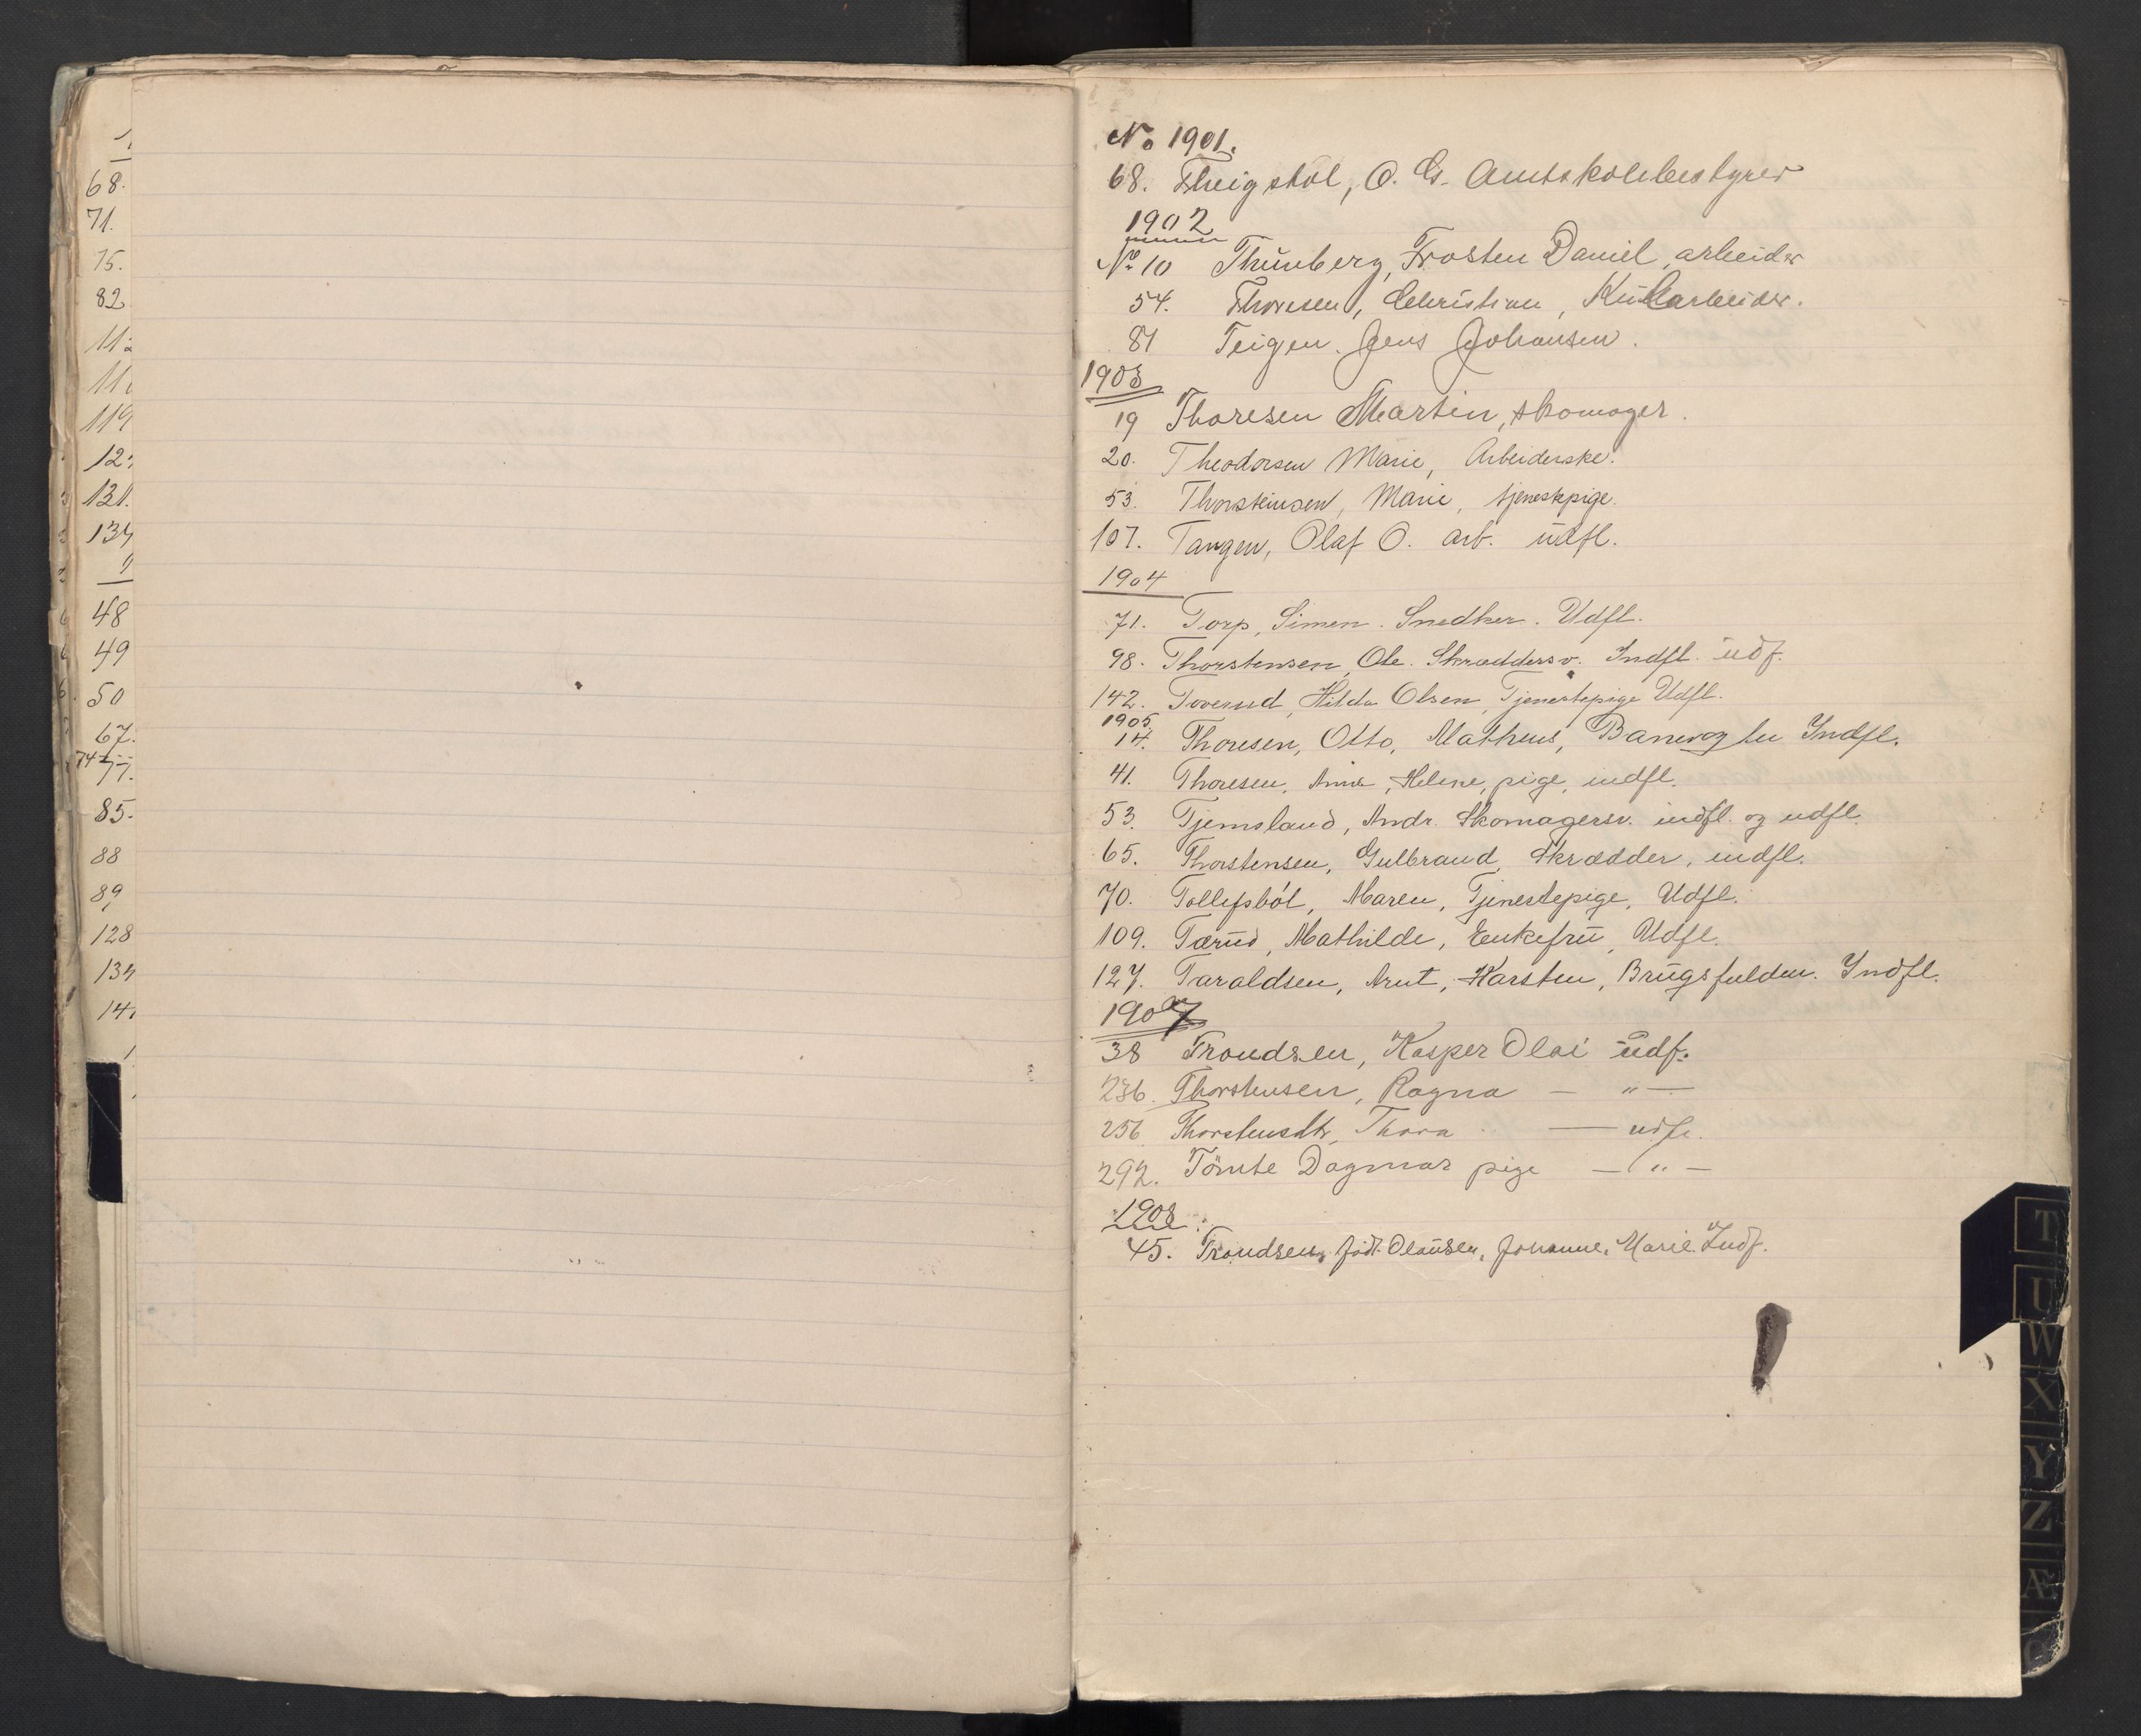 68.
71.
75.
82
119
121.
48
49
50
67.
74
77.
85.
88
89,
128
134
No 1901.
68. Theigstol, O. G. Amtskolebestyrer
1902
No 10 Thunberg, Trosten Daniel, arbeider
54. Thoresen, Christian, Kularbeider.
81 Teigen. Jens Johansen.
1903
19 Thoresen Martin, skomager.
20. Theodorsen Marie, Arbeiderske.
53. Thorsteinsen, Marie, tjenestepige.
107. Tangen, Olaf O. arb. udfl.
1904
71. Torp, Simen. Snedker. Udfl.
98. Thorstensen, Ole. Skræddersv. Indfl. udf.
142. Toverud, Hilda Olsen, Tjenestepige Udfl.
1905
14. Thoresen, Otto, Matheus, Banevogter Indfl.
41. Thoresen, Anna, Helene, pige, indfl.
53. Tjemsland, Andr. Skomagersv. indfl. og udfl.
65. Thorstensen, Gulbrand, Skrædder, indfl.
70. Tollefsböl, Maren, Tjenestepige, Udfl.
109. Tærud, Mathilde, Enkefru, Udfl.
127. Taraldsen, Arnt, Karsten, Brugsfuldm. Indfl.
1907
38 Trondsen, Kasper Olai udf.
236. Thorstensen, Ragna — " —
256 Thorstensdtr, Thora — udfl.
292. Tömte Dagmar pige — " —
1908.
45. Trondsen, född Olausen, Johanne, Marie. Indf.
T
U
W
X
Y
Z
Æ